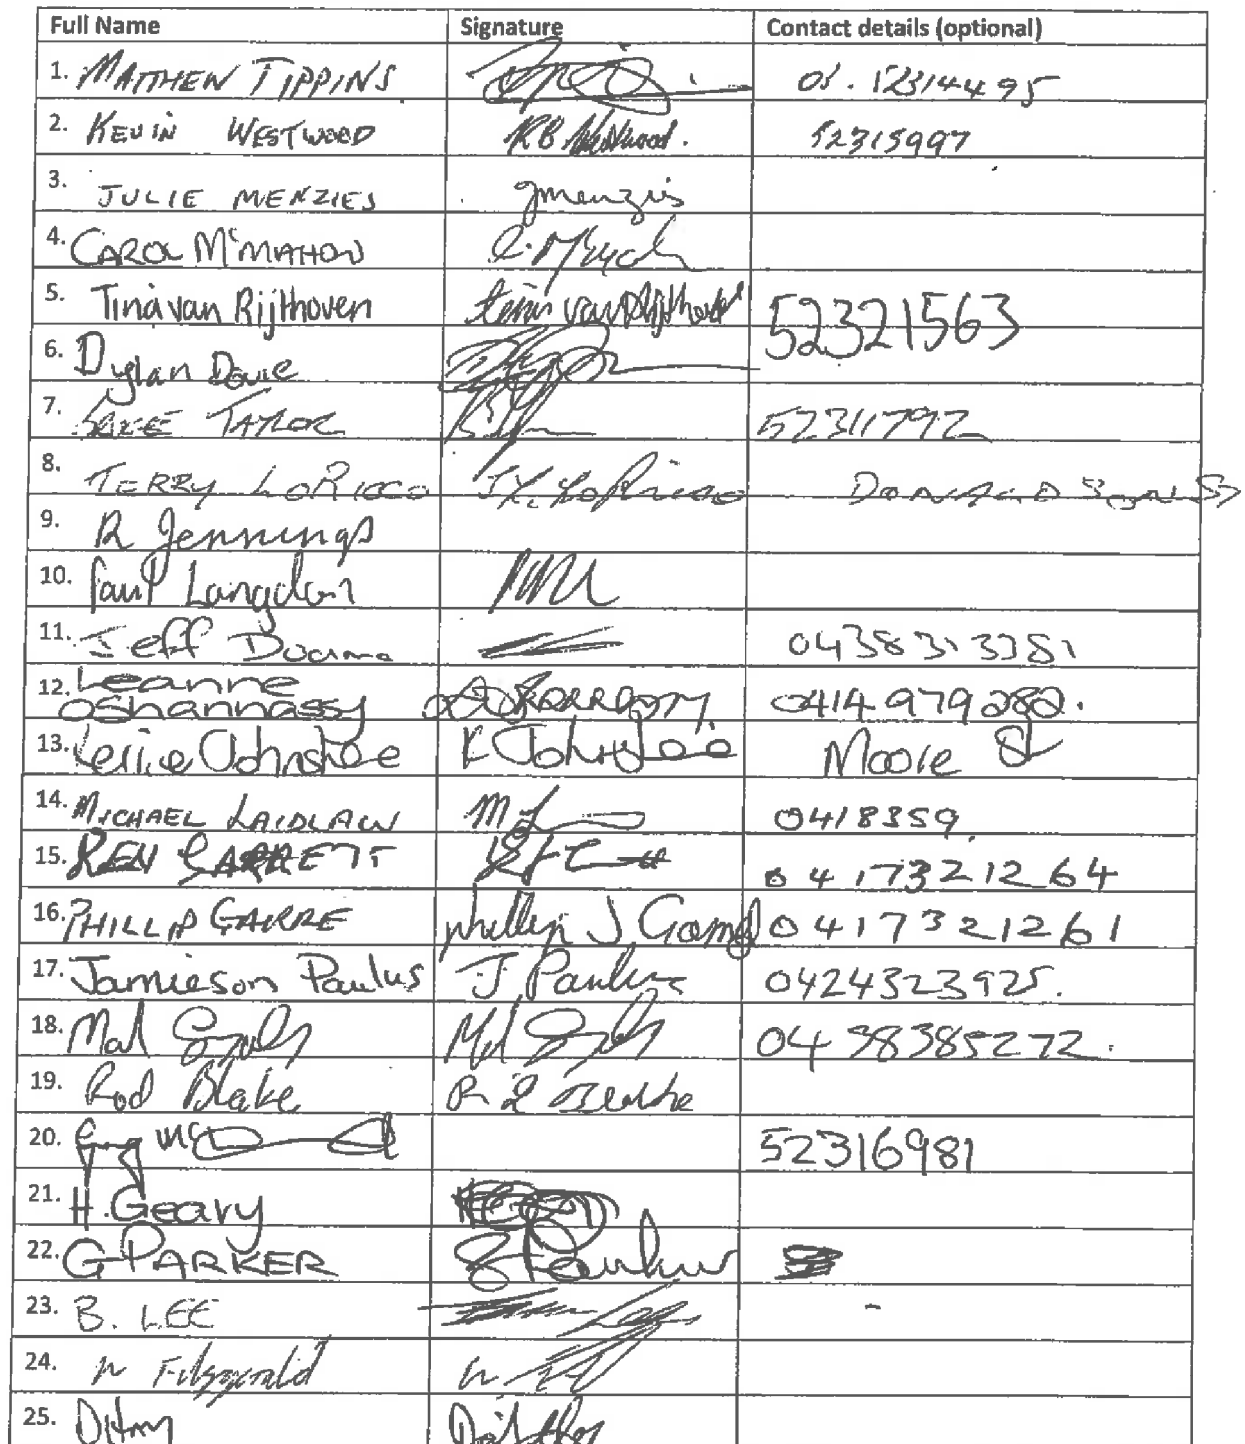 Full Name Signature Contact details (optional)
1. MATTHEW TIPPINS 03.52314495
2. KEVIN WESTWOOD KB Westwood. 52315997
3. JULIE MENZIES Jmenzies
4. CAROL McMAHON
5. Tina van Rijthoven tina van Rijthoven 52321563
6. Dylan
7. TAYLOR 52311792
8. TERRY LORICCO T.Y. LoRicco DONALD
9. R Jennings
10. Paul Langdon
11. Jeff 0438313381
12. Leanne
OShannassy 0414979282.
13. Johnstee K Moore St
14. MICHAEL LAIDLAW ML 0418359
15. KEN GARRETT 0417321264
16. PHILLIP Phillip J 0417321261
17. Jamieson Paulus J Paulus 0424323925.
18. Mal Mal 0438385272.
19. Rod Blake R L Blake
20. 52316981
21. H. Geary
22. G PARKER G Parker
23. B. LEE Lee
24. Fitzgerald
25.